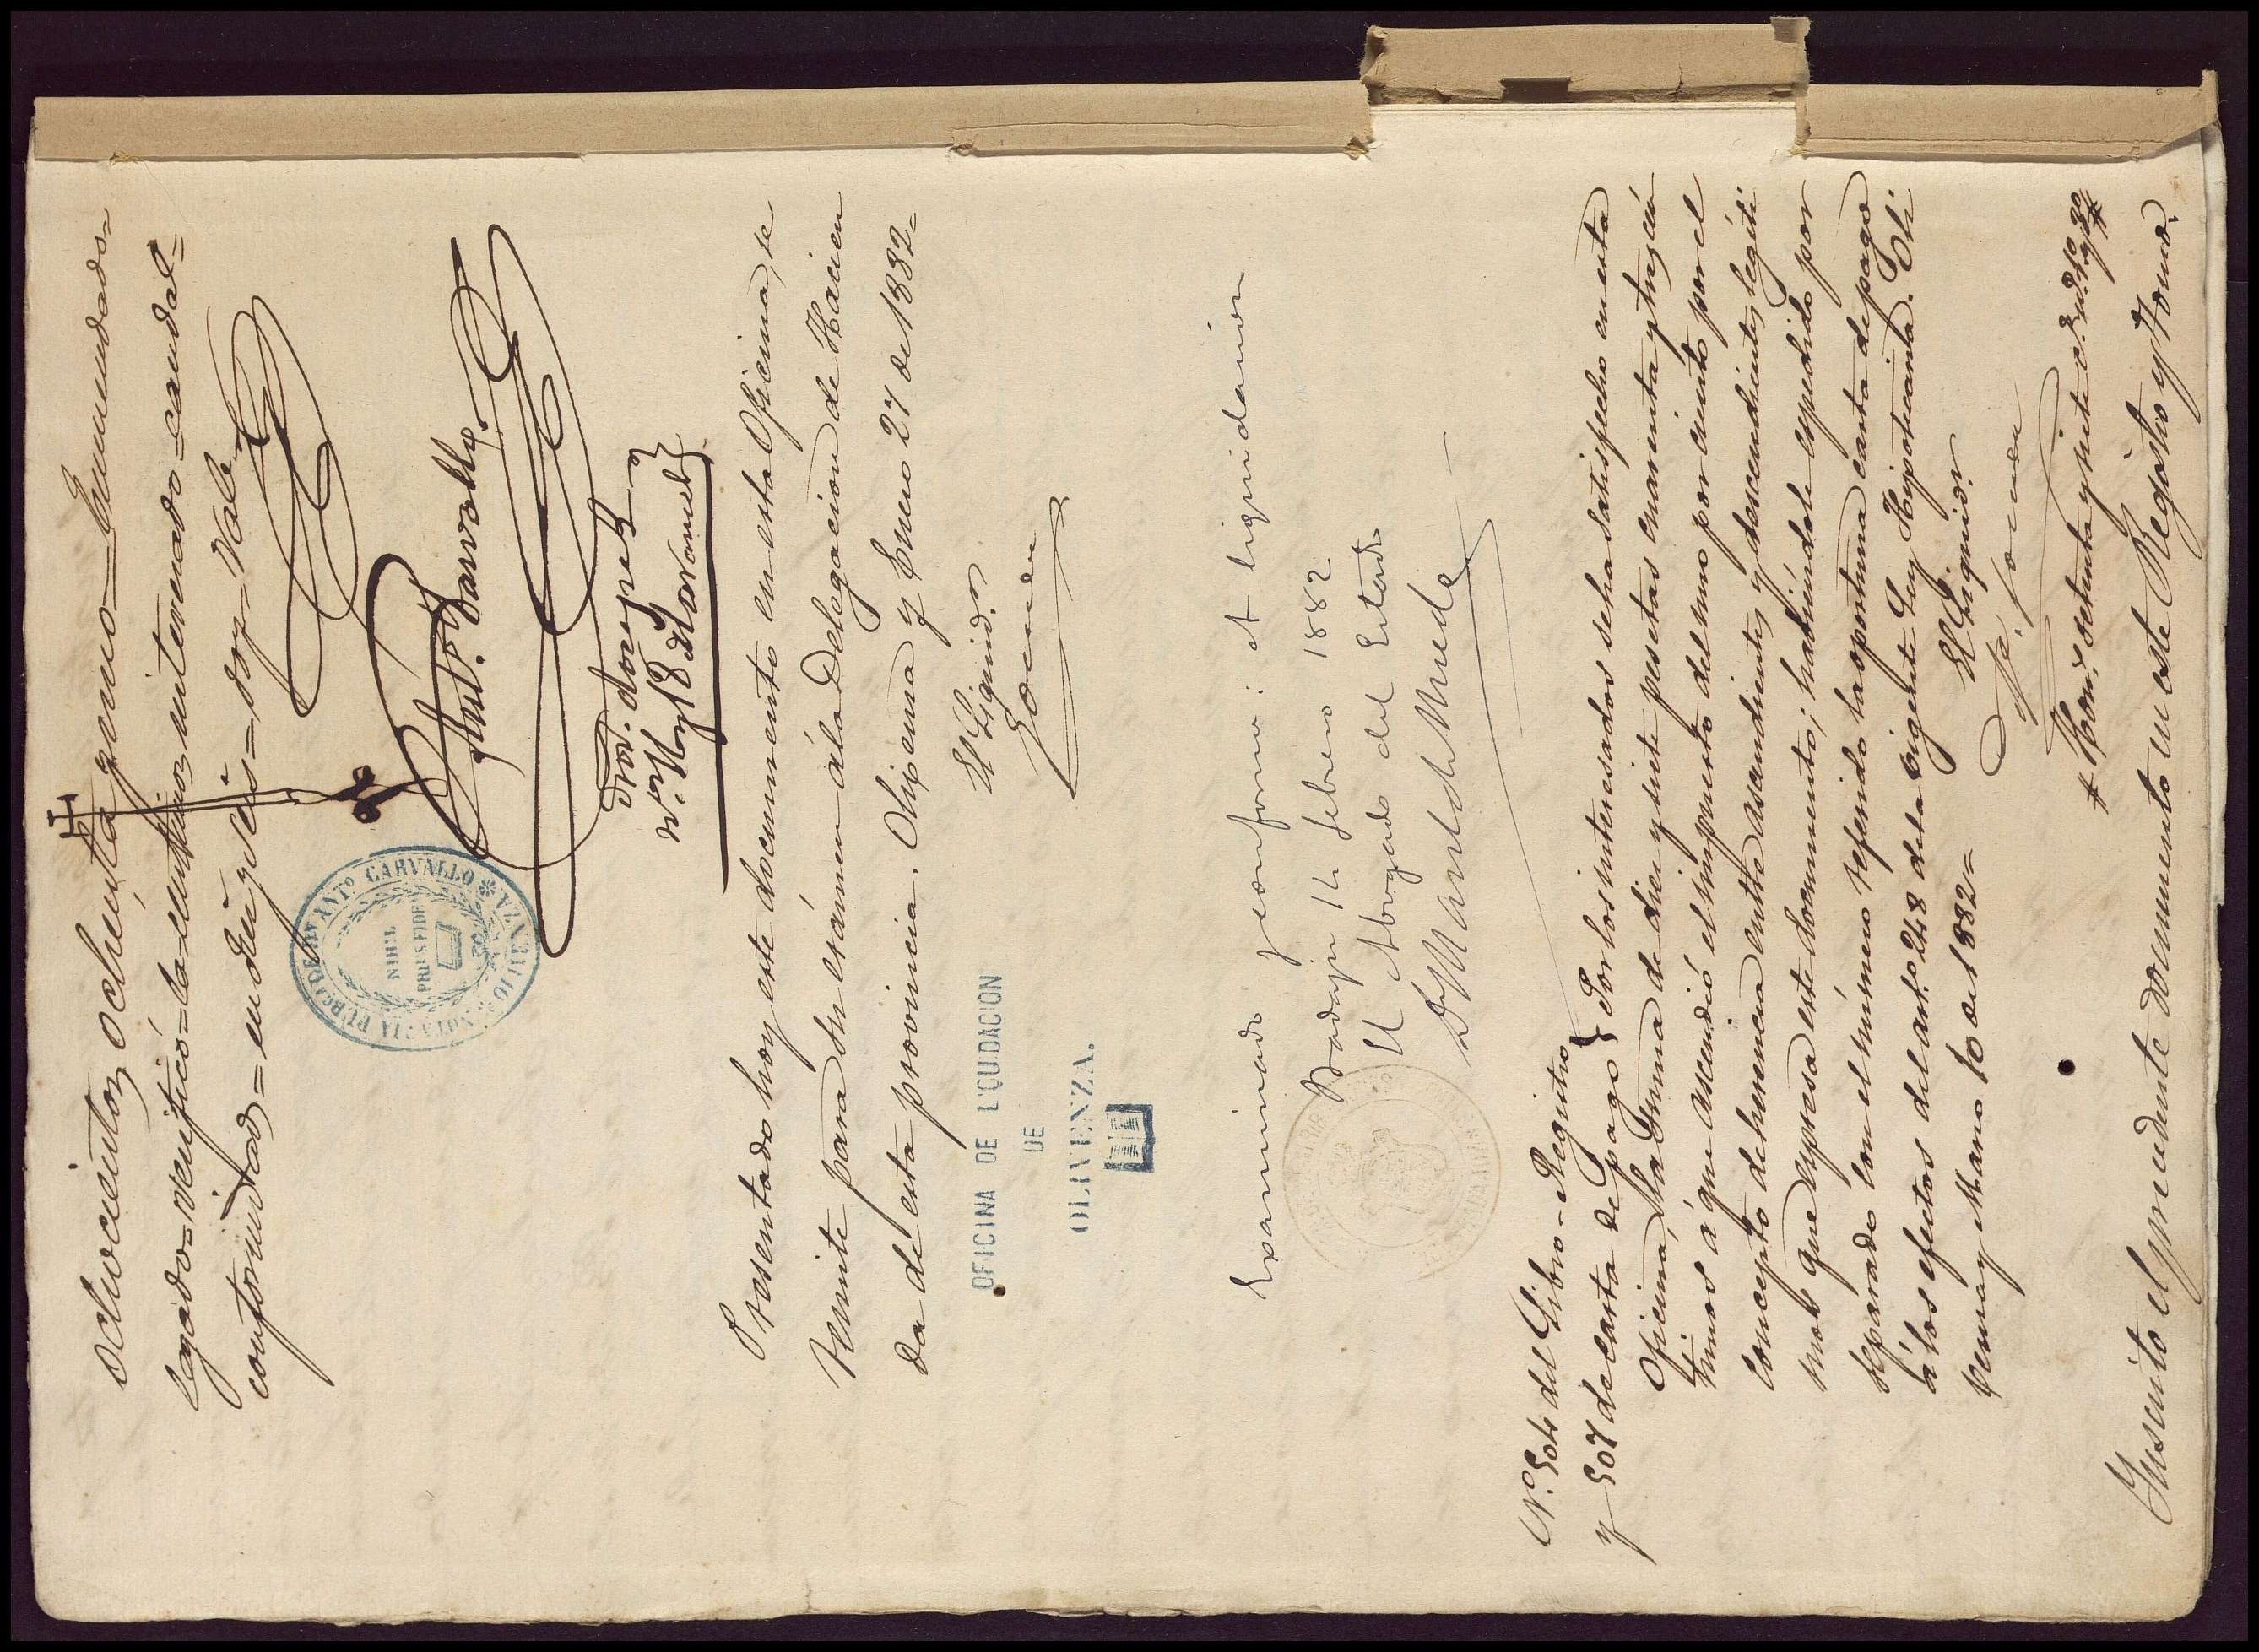 ochocientos ochenta y uno = Enmendado =
legado = verificó = la = mitad = interesado = caudal =
conformidad = en diez y seis = soy = Vale =
Ant.º Carvallo
NOTARIA PUBCA DE DON ANTO CARVALLO * OLIVENZA *
NIHIL PRIUS FIDE
Dros.
Nos.
Presentado hoy este documento en esta Oficina, se
remite para su exámen á la Delegacion de Hacien
da de esta provincia. Olivenza y Enero 27 de 1882 =
El Liquidor
OFICINA DE LIQUIDACION
DE
OLIVENZA.
Examinado y conforme: á liquidacion
Badajoz 14 febrero 1882
El Abogado del Estado
Nº. 504 del Libro-Registro
y 507 de carta de pago } Por los interesados se ha satisfecho en esta
Oficina, la suma de diez y siete pesetas cuarenta y tres cén
timos á que ascendió el impuesto del uno por ciento por el
concepto de herencia entre ascendientes y descendientes legíti
mos que espresa este documento; habiéndole espedido por
separado con el número referido la oportuna carta de pago
á los efectos del art.º 248 de la vigente Ley Hipotecaria. Oli
venza y Marzo 10 de 1882 =
El Liquidor
Hon.s setenta y siete c.
Inscrito el precedente documento en este Registro y tomo